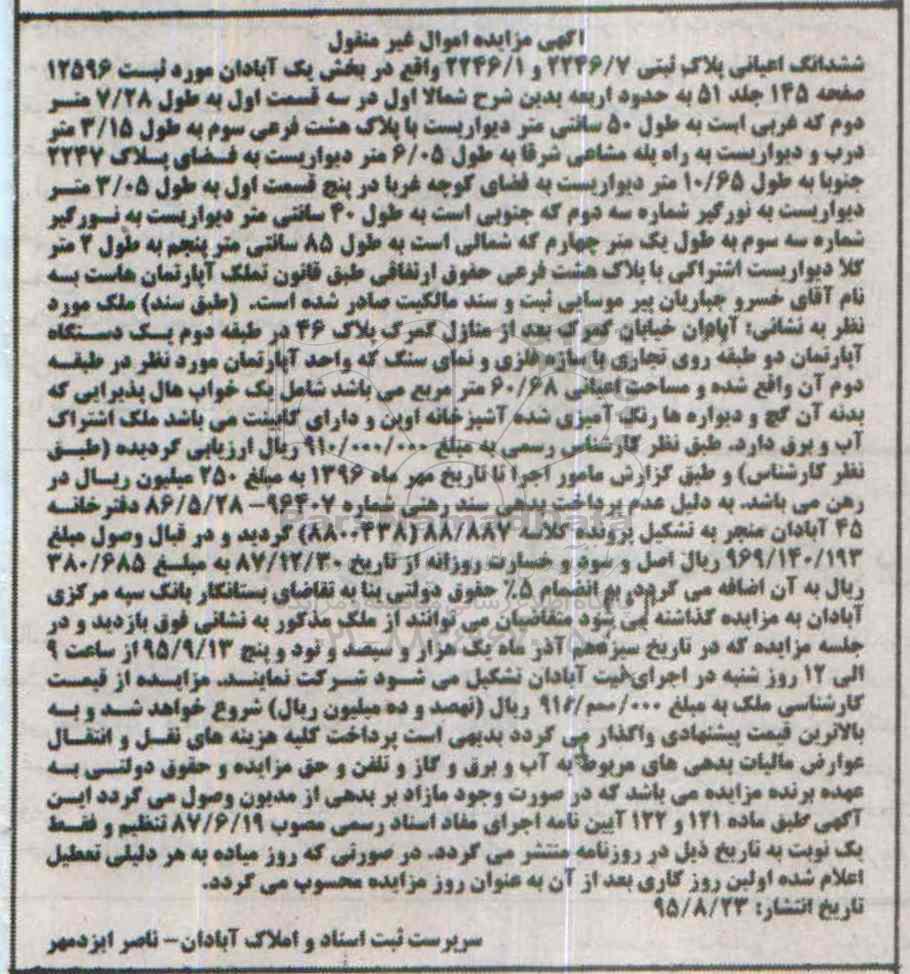 آگهی مزایده اموال غیر منقول
ششدانگ اعیانی پلاک ثبتی ۲۲۴۶/۷ و ۲۲۴۶/۱ واقع در بخش یک آبادان مورد ثبت ۱۲۵۹۶
صفحه ۱۴۵ جلد ۵۱ به حدود اربعه بدین شرح شمالا اول در سه قسمت اول به طول ۷/۲۸ متر
دوم که غربی است به طول ۵۰ سانتی متر دیواریست با پلاک هشت فرعی سوم به طول ۳/۱۵ متر
درب و دیواریست به راه پله مشاعی شرقا به طول ۶/۰۵ متر دیواریست به فضای پلاک ۲۲۴۷
جنوبا به طول ۱۰/۶۵ متر دیواریست به فضای کوچه غربا در پنج قسمت اول به طول ۳/۰۵ متر
دیواریست به نورگیر شماره سه دوم که جنوبی است به طول ۴۰ سانتی متر دیواریست به نورگیر
شماره سه سوم به طول یک متر چهارم که شمالی است به طول ۸۵ سانتی متر پنجم به طول ۲ متر
کلا دیواریست اشتراکی با پلاک هشت فرعی حقوق ارتفاقی طبق قانون تملک آپارتمان هاست به
نام آقای خسرو جباریان پیر موسایی ثبت و سند مالکیت صادر شده است. (طبق سند) ملک مورد
نظر به نشانی: آبادان خیابان گمرک بعد از منازل گمرک پلاک ۴۶ در طبقه دوم یک دستگاه
آپارتمان دو طبقه روی تجاری با سازه فلزی و نمای سنگ که واحد آپارتمان مورد نظر در طبقه
دوم آن واقع شده و مساحت اعیانی ۶۰/۶۸ متر مربع می باشد شامل یک خواب هال پذیرایی که
بدنه آن گچ و دیواره ها رنگ آمیزی شده آشپزخانه اوپن و دارای کابینت می باشد ملک اشتراک
آب و برق دارد. طبق نظر کارشناس رسمی به مبلغ ۹۱۰/۰۰۰/۰۰۰ ریال ارزیابی گردیده (طبق
نظر کارشناس) و طبق گزارش مامور اجرا تا تاریخ مهر ماه ۱۳۹۶ به مبلغ ۲۵۰ میلیون ریال در
رهن می باشد. به دلیل عدم پرداخت بدهی سند رهنی شماره ۹۶۴۰۷- ۸۶/۵/۲۸ دفترخانه
۴۵ آبادان منجر به تشکیل پرونده کلاسه ۸۸/۸۸۷ (۸۸۰۰۴۳۸) گردید و در قبال وصول مبلغ
۹۶۹/۱۴۰/۱۹۳ ریال اصل و سود و خسارت روزانه از تاریخ ۸۷/۱۲/۳۰ به مبلغ ۳۸۰/۶۸۵
ریال به آن اضافه می گردد، به انضمام ۵٪ حقوق دولتی بنا به تقاضای بستانکار بانک سپه مرکزی
آبادان به مزایده گذاشته می شود متقاضیان می توانند از ملک مذکور به نشانی فوق بازدید و در
جلسه مزایده که در تاریخ سیزدهم آذر ماه یک هزار و سیصد و نود و پنج ۹۵/۹/۱۳ از ساعت ۹
الی ۱۲ روز شنبه در اجرای ثبت آبادان تشکیل می شود شرکت نمایند. مزایده از قیمت
کارشناسی ملک به مبلغ ریال (نهصد و ده میلیون ریال) شروع خواهد شد و به
بالاترین قیمت پیشنهادی واگذار می گردد بدیهی است پرداخت کلیه هزینه های نقل و انتقال
عوارض مالیات بدهی های مربوط به آب و برق و گاز و تلفن و حق مزایده و حقوق دولتی به
عهده برنده مزایده می باشد که در صورت وجود مازاد بر بدهی از مدیون وصول می گردد این
آگهی طبق ماده ۱۲۱ و ۱۲۲ آیین نامه اجرای مفاد اسناد رسمی مصوب ۸۷/۶/۱۹ تنظیم و فقط
یک نوبت به تاریخ ذیل در روزنامه منتشر می گردد. در صورتی که روز میاده به هر دلیلی تعطیل
اعلام شده اولین روز کاری بعد از آن به عنوان روز مزایده محسوب می گردد.
تاریخ انتشار: ۹۵/۸/۲۳
سرپرست ثبت اسناد و املاک آبادان- ناصر ایزدمهر